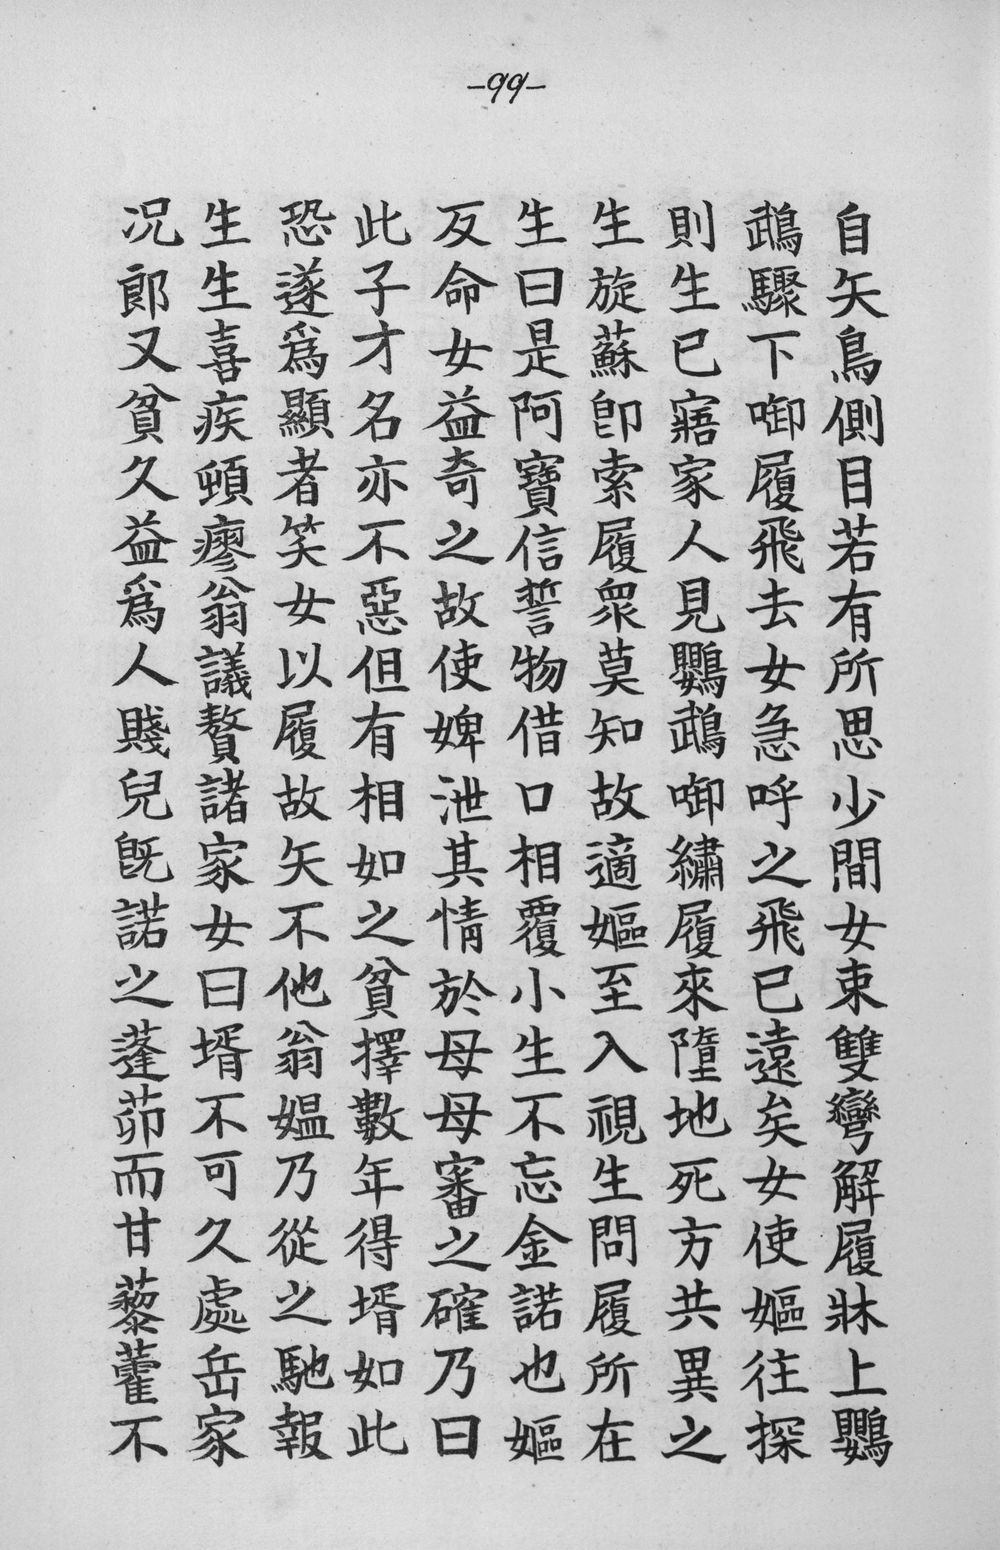 -99-
自矢鳥側目若有所思少間女束雙彎解履牀上鸚
鵡驟下啣履飛去女急呼之飛已遠矣女使嫗往探
則生已寤家人見鸚鵡啣繡履來墮地死方共異之
生旋蘇卽索履衆莫知故適嫗至入視生問履所在
生曰是阿寶信誓物借口相覆小生不忘金諾也嫗
反命女益奇之故使婢泄其情於母母審之確乃曰
此子才名亦不惡但有相如之貧擇數年得壻如此
恐遂爲顯者笑女以履故矢不他翁媼乃從之馳報
生生喜疾頓瘳翁議贅諸家女曰壻不可久處岳家
况郎又貧久益爲人賤兒旣諾之蓬茆而甘藜藿不